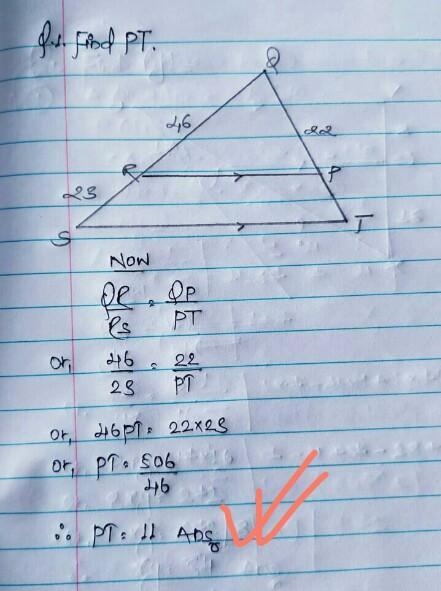 Q.1. Find PT.
Q
46
22
R
P
23
S
T
Now
QR/RS = QP/PT
or, 46/23 = 22/PT
or, 46PT = 22×23
or, PT = 506/46
∴ PT = 11 Ans